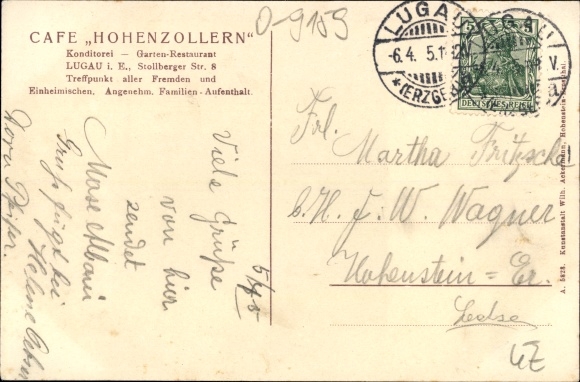 CAFE „HOHENZOLLERN"
Konditorei — Garten-Restaurant
LUGAU i. E., Stollberger Str. 8
Treffpunkt aller Fremden und
Einheimischen. Angenehm. Familien-Aufenthalt.
O-9159
LUGAU
-6.4. 5.1
*(ERZGEB
LUGAU
V.
DEUTSCHES REICH
5/4 05
Viele Grüße
von hier
sendet
Gruß fügt bei
Helene
Dora
Frl.
Martha Fritzsche
b. H. F. W. Wagner
Hohenstein = Er.
A. 5928. Kunstanstalt Wilh. Ackermann, Hohenstein-Ernstthal.